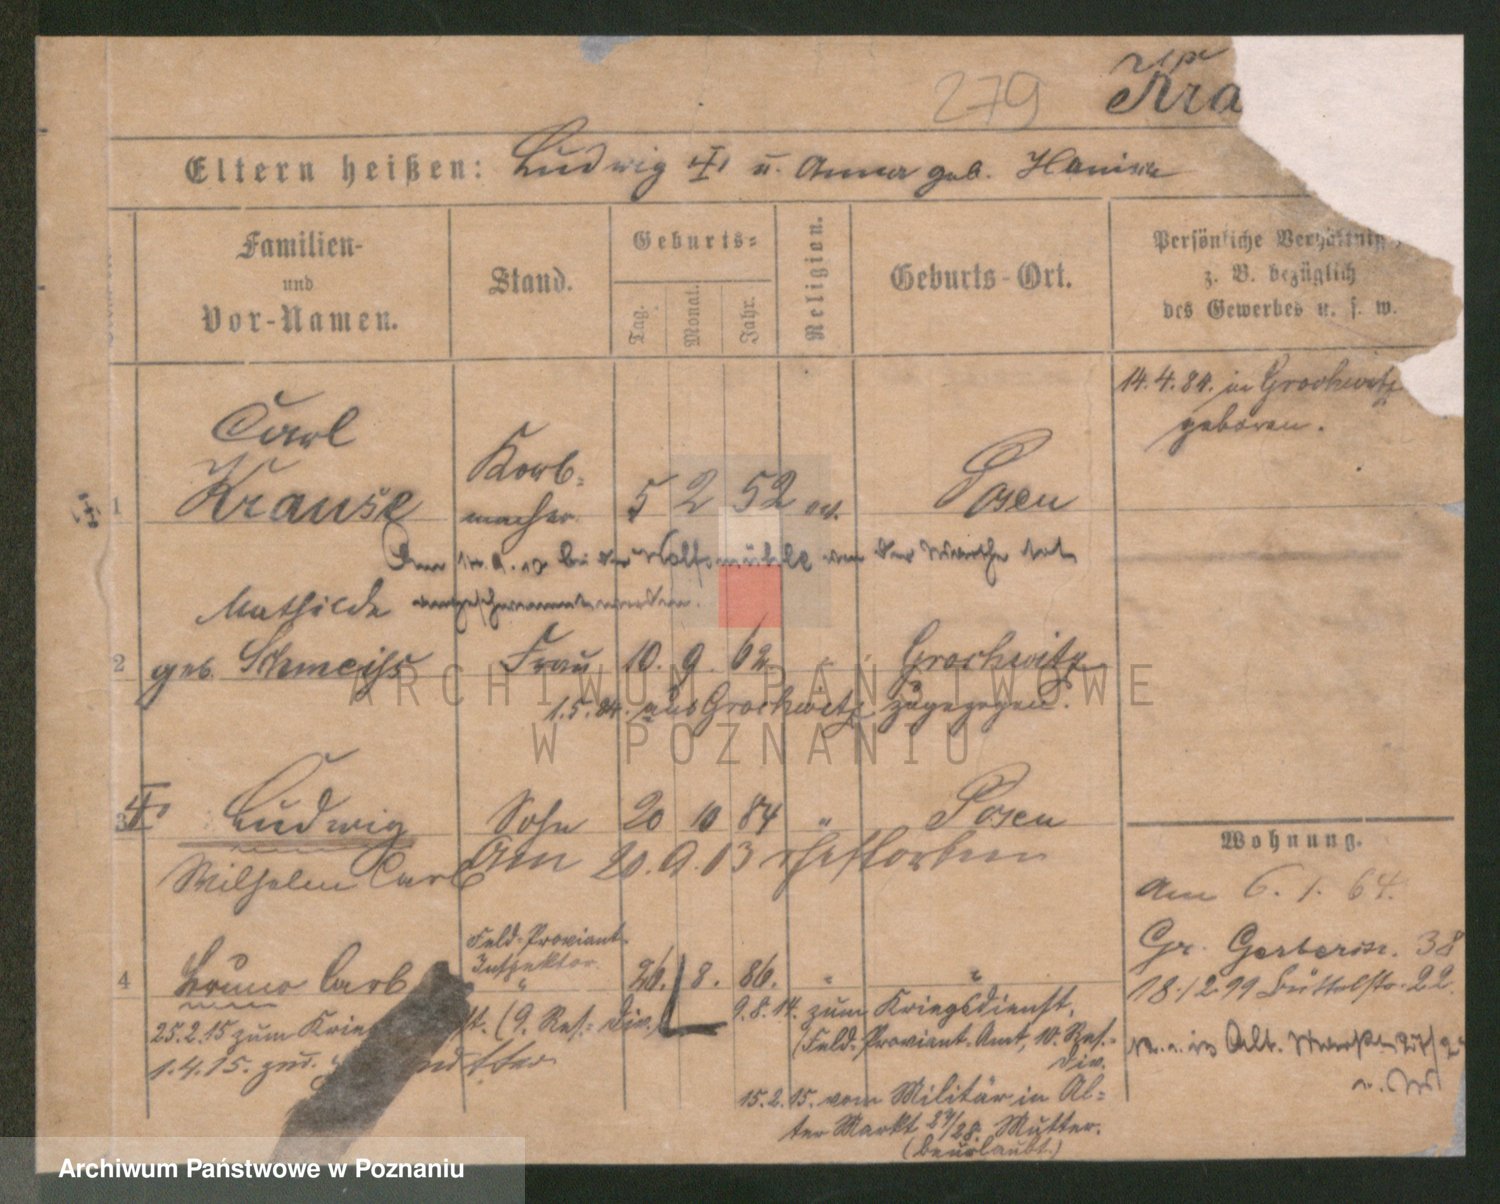 279
Kra
Eltern heißen: Ludwig u. Anna geb.
Familien-
und
Vor-Namen.
Stand.
Geburts-
Tag.
Monat.
Jahr.
Religion.
Geburts-Ort.
Persönliche Verhältniss
z. B. bezüglich
des Gewerbes u. s. w.
14.4.84. in Grochwitz
geboren.
1
Carl
Krause
Korb-
macher
5 2 52 ev.
Posen
bei der Wolfsmühle an der Warthe tot
Mathilde angeschwemmt worden.
2
geb. Schmeiss Frau 10. 9. 62 " Grochwitz
1.5.84. aus Grochwitz zugezogen.
3
Ludwig Sohn 20 10 84 " Posen
Wilhelm Carl
Am 20.9.03 verstorben
Wohnung.
Am 6.1.64.
Gr. Gerberstr. 38
18.12.99 Büttelstr. 22.
4
Bruno Carl
Feld-Proviant-
Inspektor.
"
26. 8. 86. " "
25.2.15 zum Krieg st. (9. Res.-Div.)
1.4.15.
9.8.14. zum Kriegsdienst,
(Feld-Proviant-Amt, 10. Res.-
Div.
15.2.15. vom Militär in Al-
ter Markt 27/28. Mutter.
(beurlaubt.)
Alt. Markt
ARCHIWUM PAŃSTWOWE
W POZNANIU
Archiwum Państwowe w Poznaniu